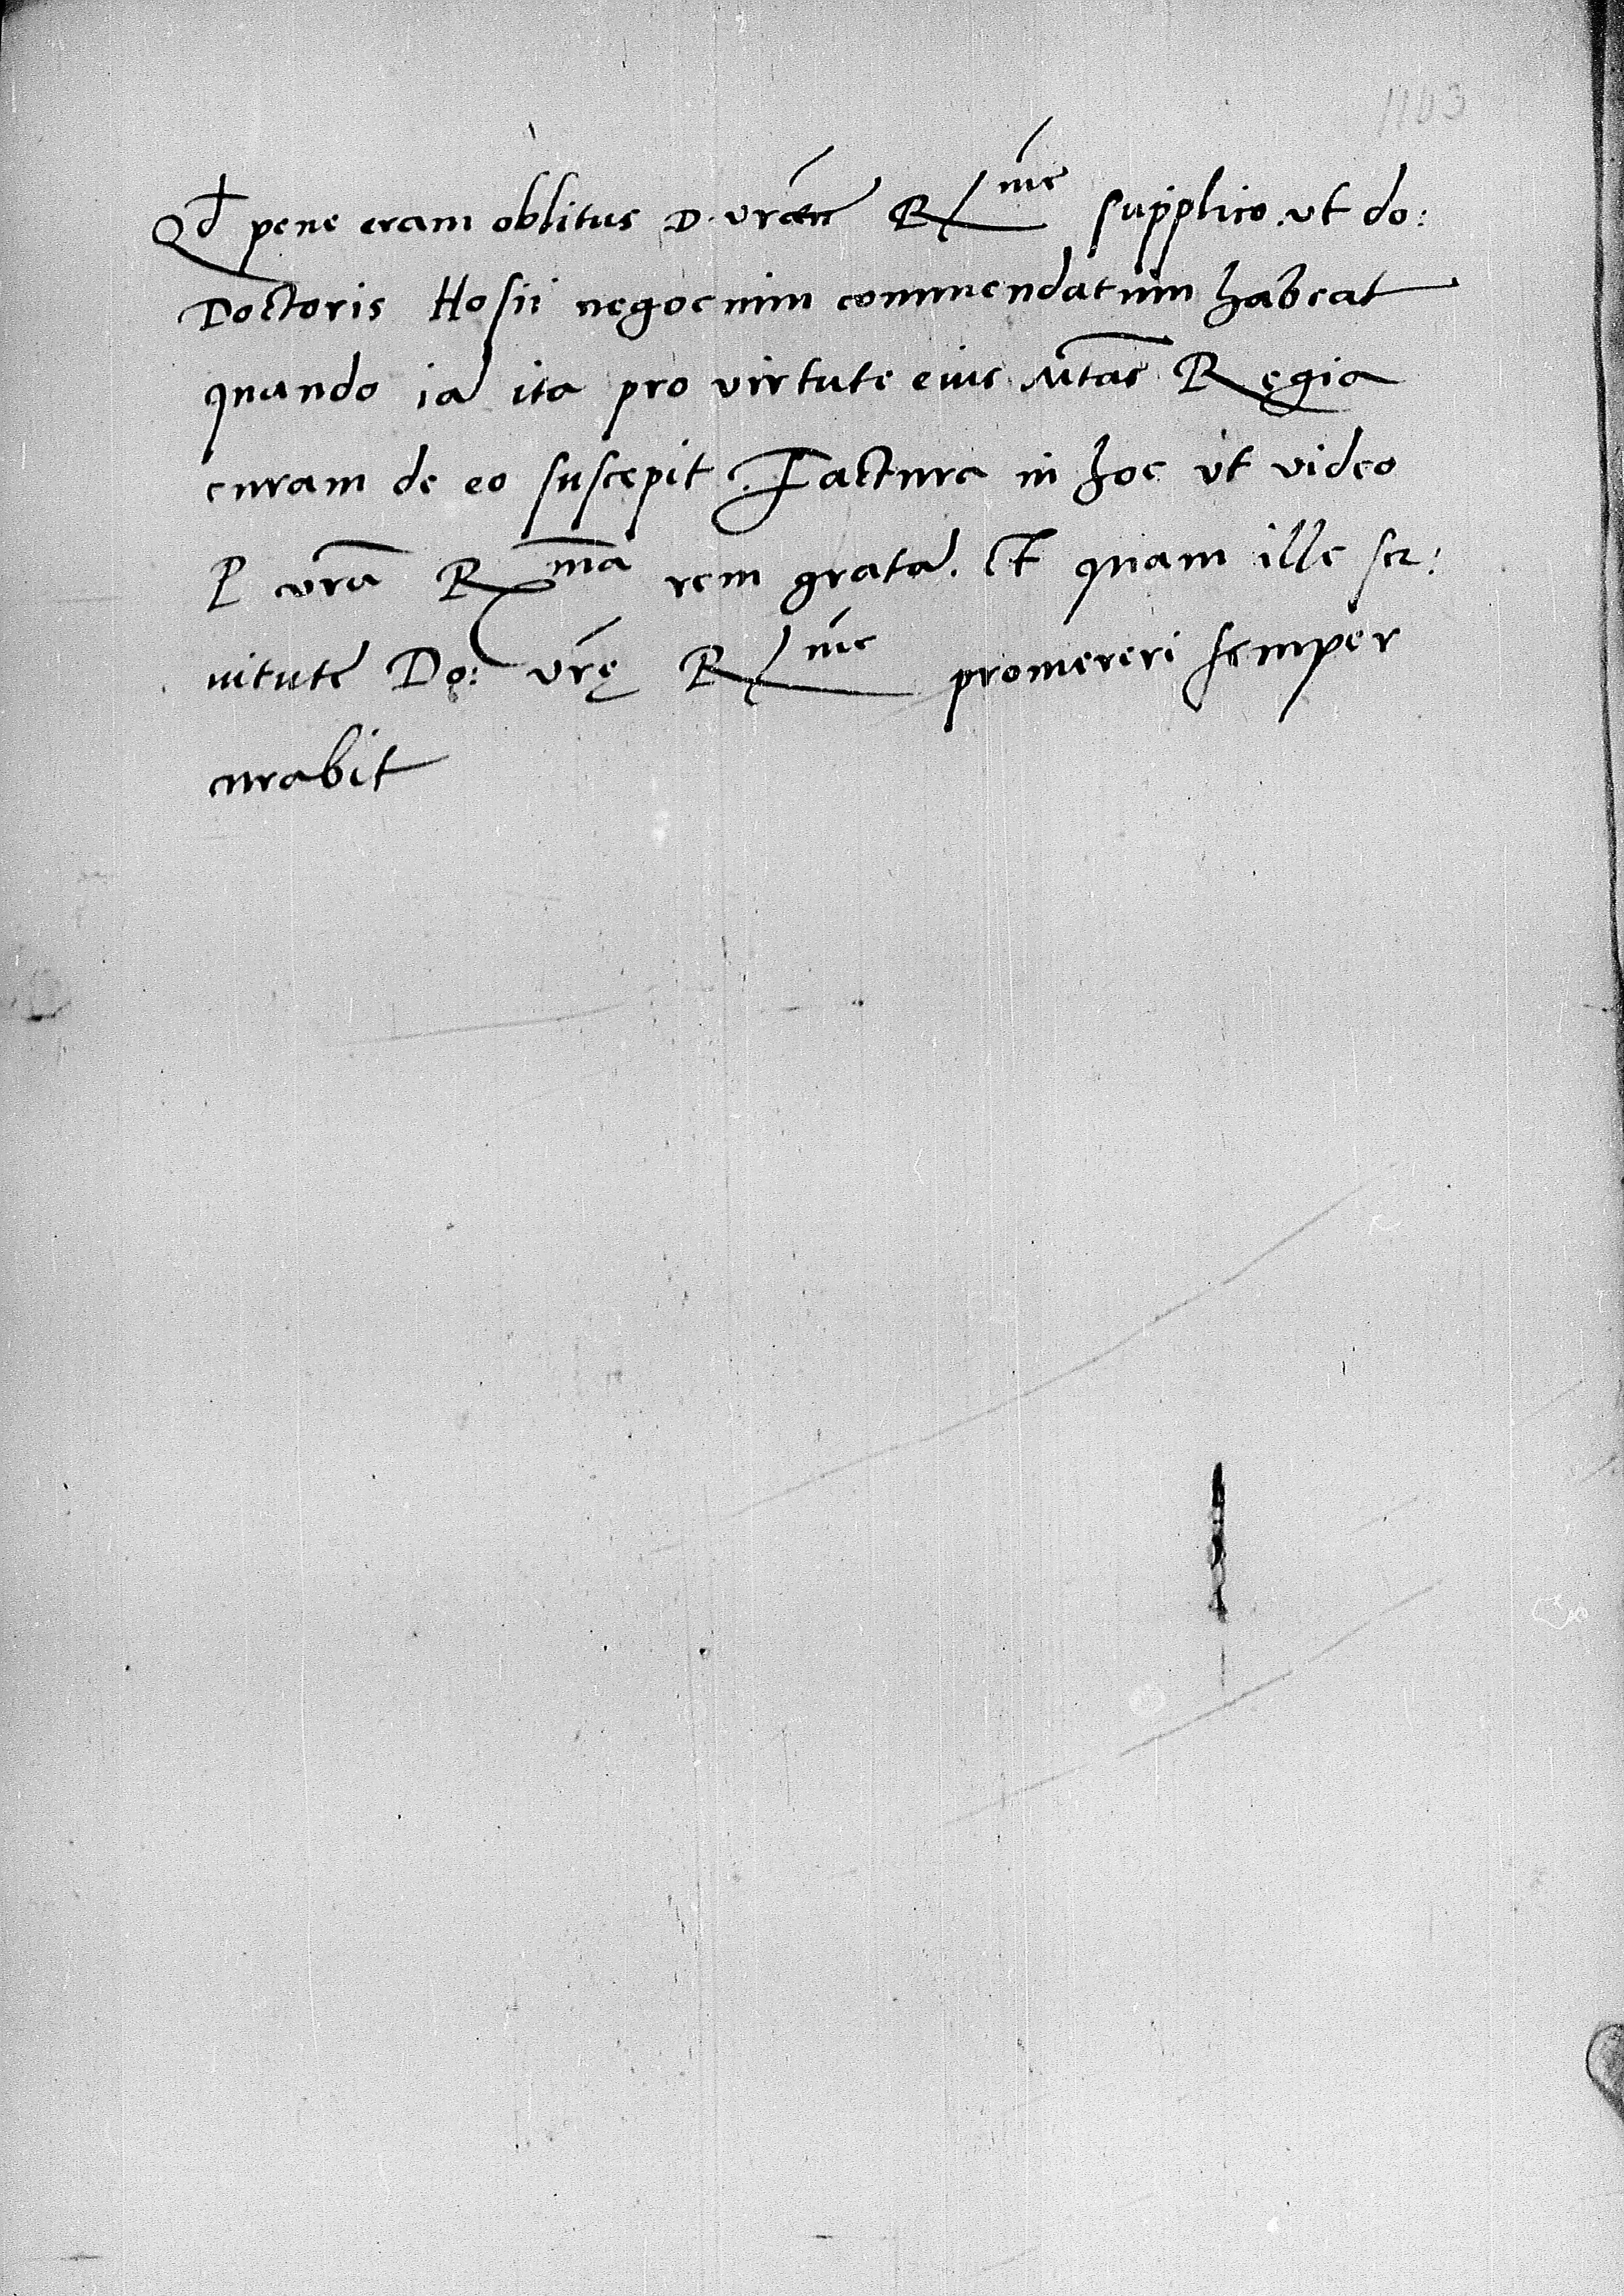 1103
Qđ pene eram oblitus D. vrãm R^me supplico. ut do:
Doctoris Hosii negocium commendatum habeat
quando iã ita pro virtute eius Mtas Regia
curam de eo suscepit. Factura in hoc ut video
P vra R^ma rem gratã. Et quam ille ser:
vitute Do: vrę R^me promereri semper
curabit